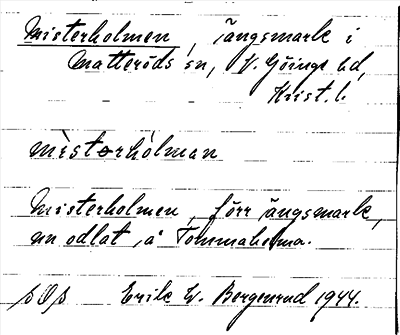 Misterholmen, ängsmark i
Matteröds sn, V. Göinge hd,
Krist. l.
mìstərhólman
Misterholmen, förr ängsmark,
nu odlat, å Tommaholma.
sOs Erik W. Bergenrud 1944.